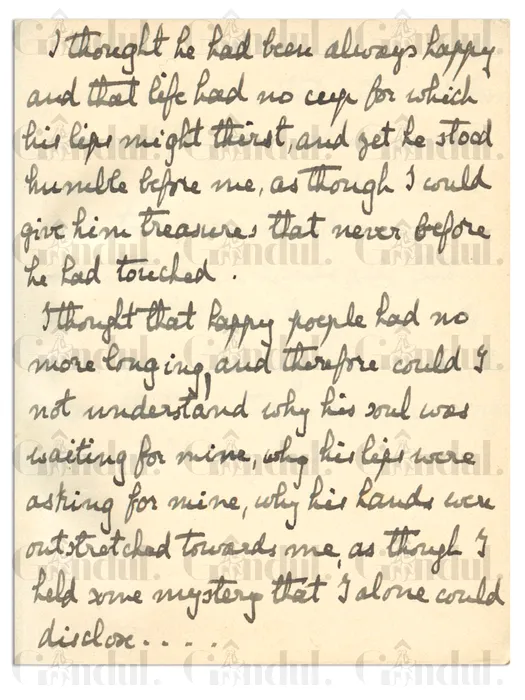 I thought he had been always happy
and that life had no cup for which
his lips might thirst, and yet he stood
humble before me, as though I could
give him treasures that never before
he had touched.
I thought that happy poeple had no
more longing, and therefore could I
not understand why his soul was
waiting for mine, why his lips were
asking for mine, why his hands were
outstretched towards me, as though I
held some mystery that I alone could
disclose.....